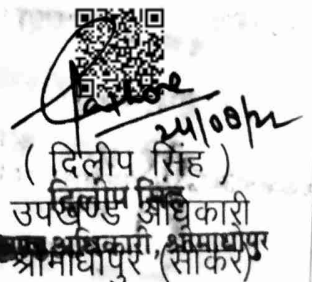 24/08/22
( दिलीप सिंह )
दिलीप सिंह
उपखण्ड अधिकारी
अधिकारी, श्रीमाधोपुर
श्रीमाधोपुर (सीकर)